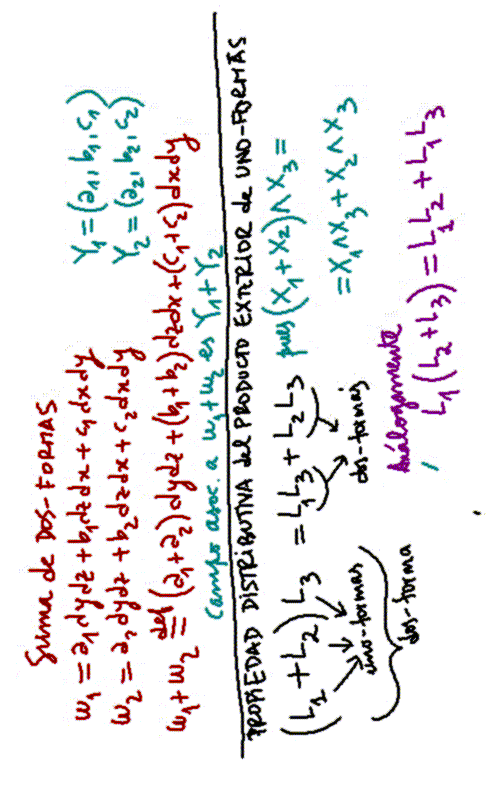 Suma de DOS-FORMAS
ω₁ = a₁dydz + b₁dzdx + c₁dxdy Y₁ = (a₁, b₁, c₁)
ω₂ = a₂dydz + b₂dzdx + c₂dxdy Y₂ = (a₂, b₂, c₂)
ω₁+ω₂ ≡def (a₁+a₂)dydz + (b₁+b₂)dzdx + (c₁+c₂)dxdy
Campo asoc. a ω₁+ω₂ es Y₁+Y₂
PROPIEDAD DISTRIBUTIVA del PRODUCTO EXTERIOR de UNO-FORMAS
(L₁ + L₂) L₃ = L₁L₃ + L₂L₃ pues (X₁+X₂)∧X₃ =
= X₁∧X₃ + X₂∧X₃
uno-formas
dos-formas
dos-forma
Análogamente
L₁(L₂+L₃) = L₁L₂ + L₁L₃